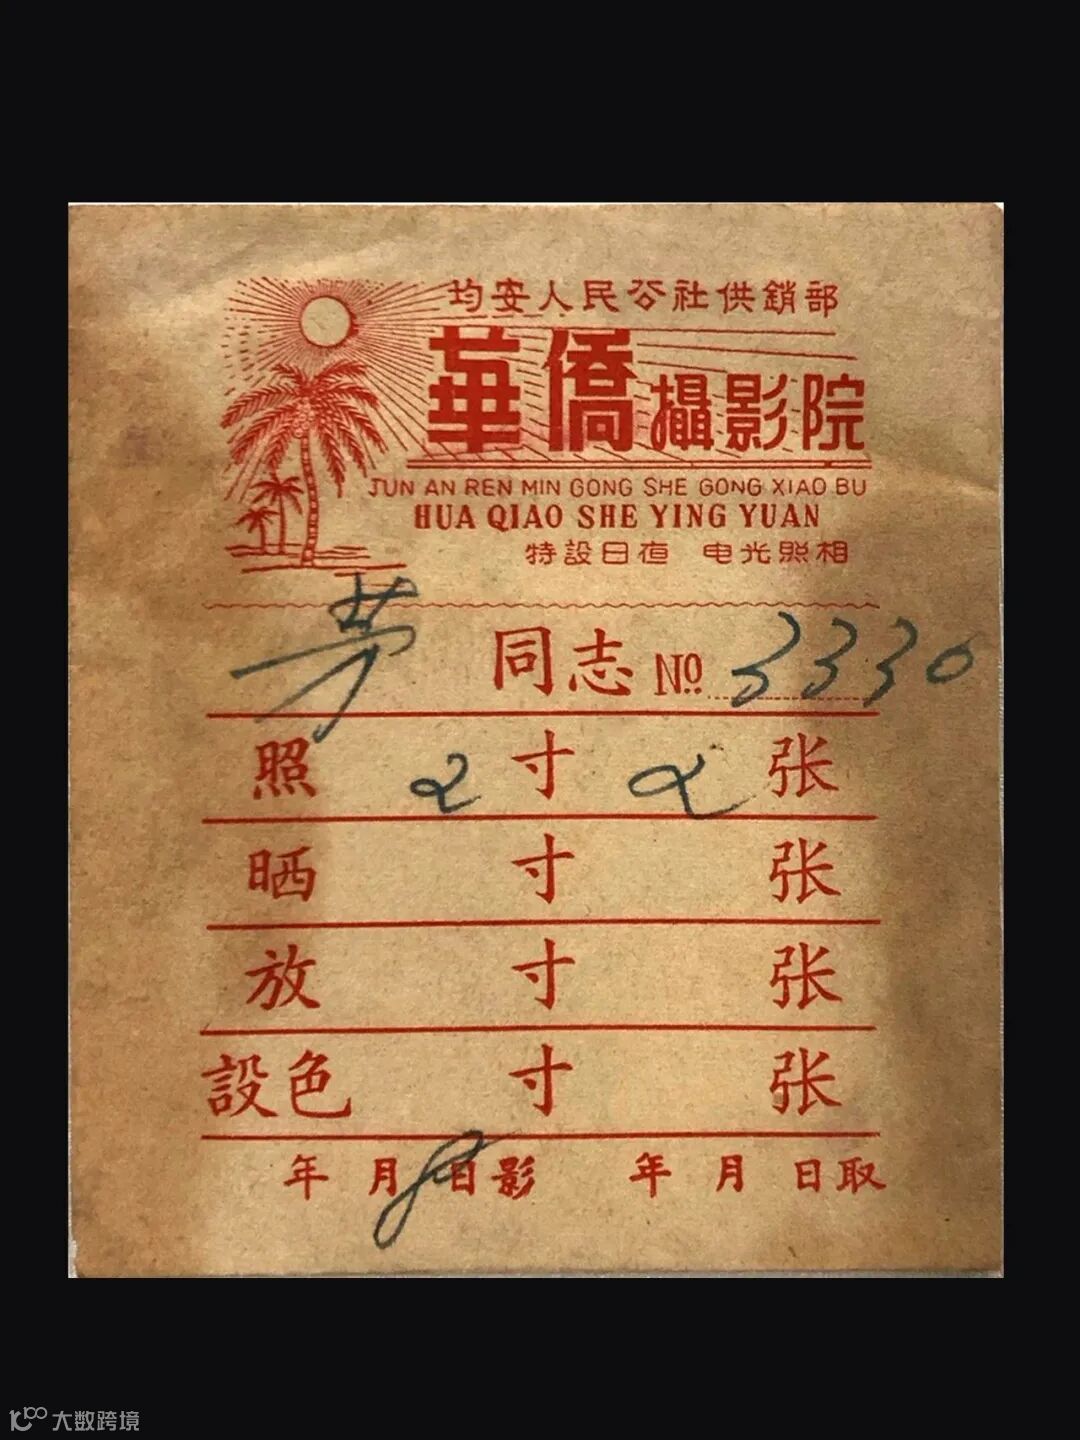 均安人民公社供銷部
華僑攝影院
JUN AN REN MIN GONG SHE GONG XIAO BU
HUA QIAO SHE YING YUAN
特設日夜 电光照相
芳 同志 No 3330
照 2 寸 2 张
晒 寸 张
放 寸 张
設色 寸 张
年 月 8 日影 年 月 日取
大数跨境